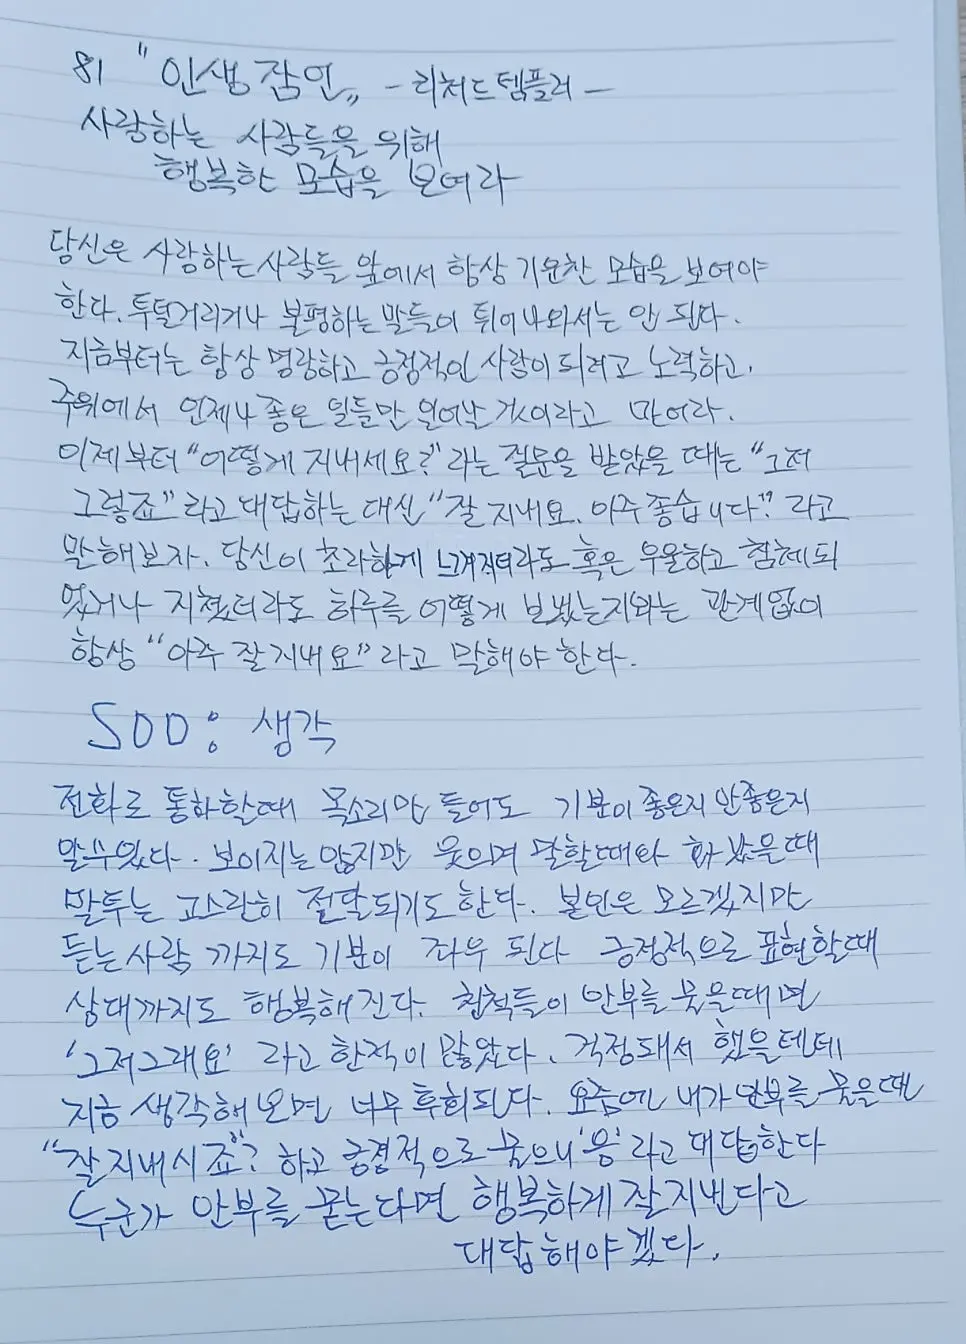 81 "인생잠언" - 리처드템플러 -
사랑하는 사람들을 위해
행복한 모습을 보여라
당신은 사랑하는 사람들 앞에서 항상 기운찬 모습을 보여야
한다. 투덜거리거나 불평하는 말들이 튀어나와서는 안 된다.
지금부터는 항상 명랑하고 긍정적인 사람이 되려고 노력하고,
주위에서 언제나 좋은 일들만 일어난 것이라고 믿어라.
이제부터 "어떻게 지내세요?"라는 질문을 받았을 때는 "그저
그렇죠"라고 대답하는 대신 "잘 지내요. 아주 좋습니다."라고
말해보자. 당신이 초라하게 느껴지더라도 혹은 우울하고 침체되
었거나 지쳤더라도 하루를 어떻게 보냈는지와는 관계없이
항상 "아주 잘 지내요"라고 말해야 한다.
SOO: 생각
전화로 통화할때 목소리만 들어도 기분이 좋은지 안좋은지
알수있다. 보이지는 않지만 웃으며 말할때와 화 났을때
말투는 고스란히 전달되기도한다. 본인은 모르겠지만
듣는사람 까지도 기분이 좌우 된다 긍정적으로 표현할때
상대까지도 행복해진다. 친척들이 안부를 물을때면
'그저그래요' 라고 한적이 많았다. 걱정돼서 했을텐데
지금 생각해보면 너무 후회된다. 요즘에 내가 안부를 물을때
"잘지내시죠"? 하고 긍정적으로 물으니 '응'라고 대답한다
누군가 안부를 묻는다면 행복하게 잘지낸다고
대답해야겠다.